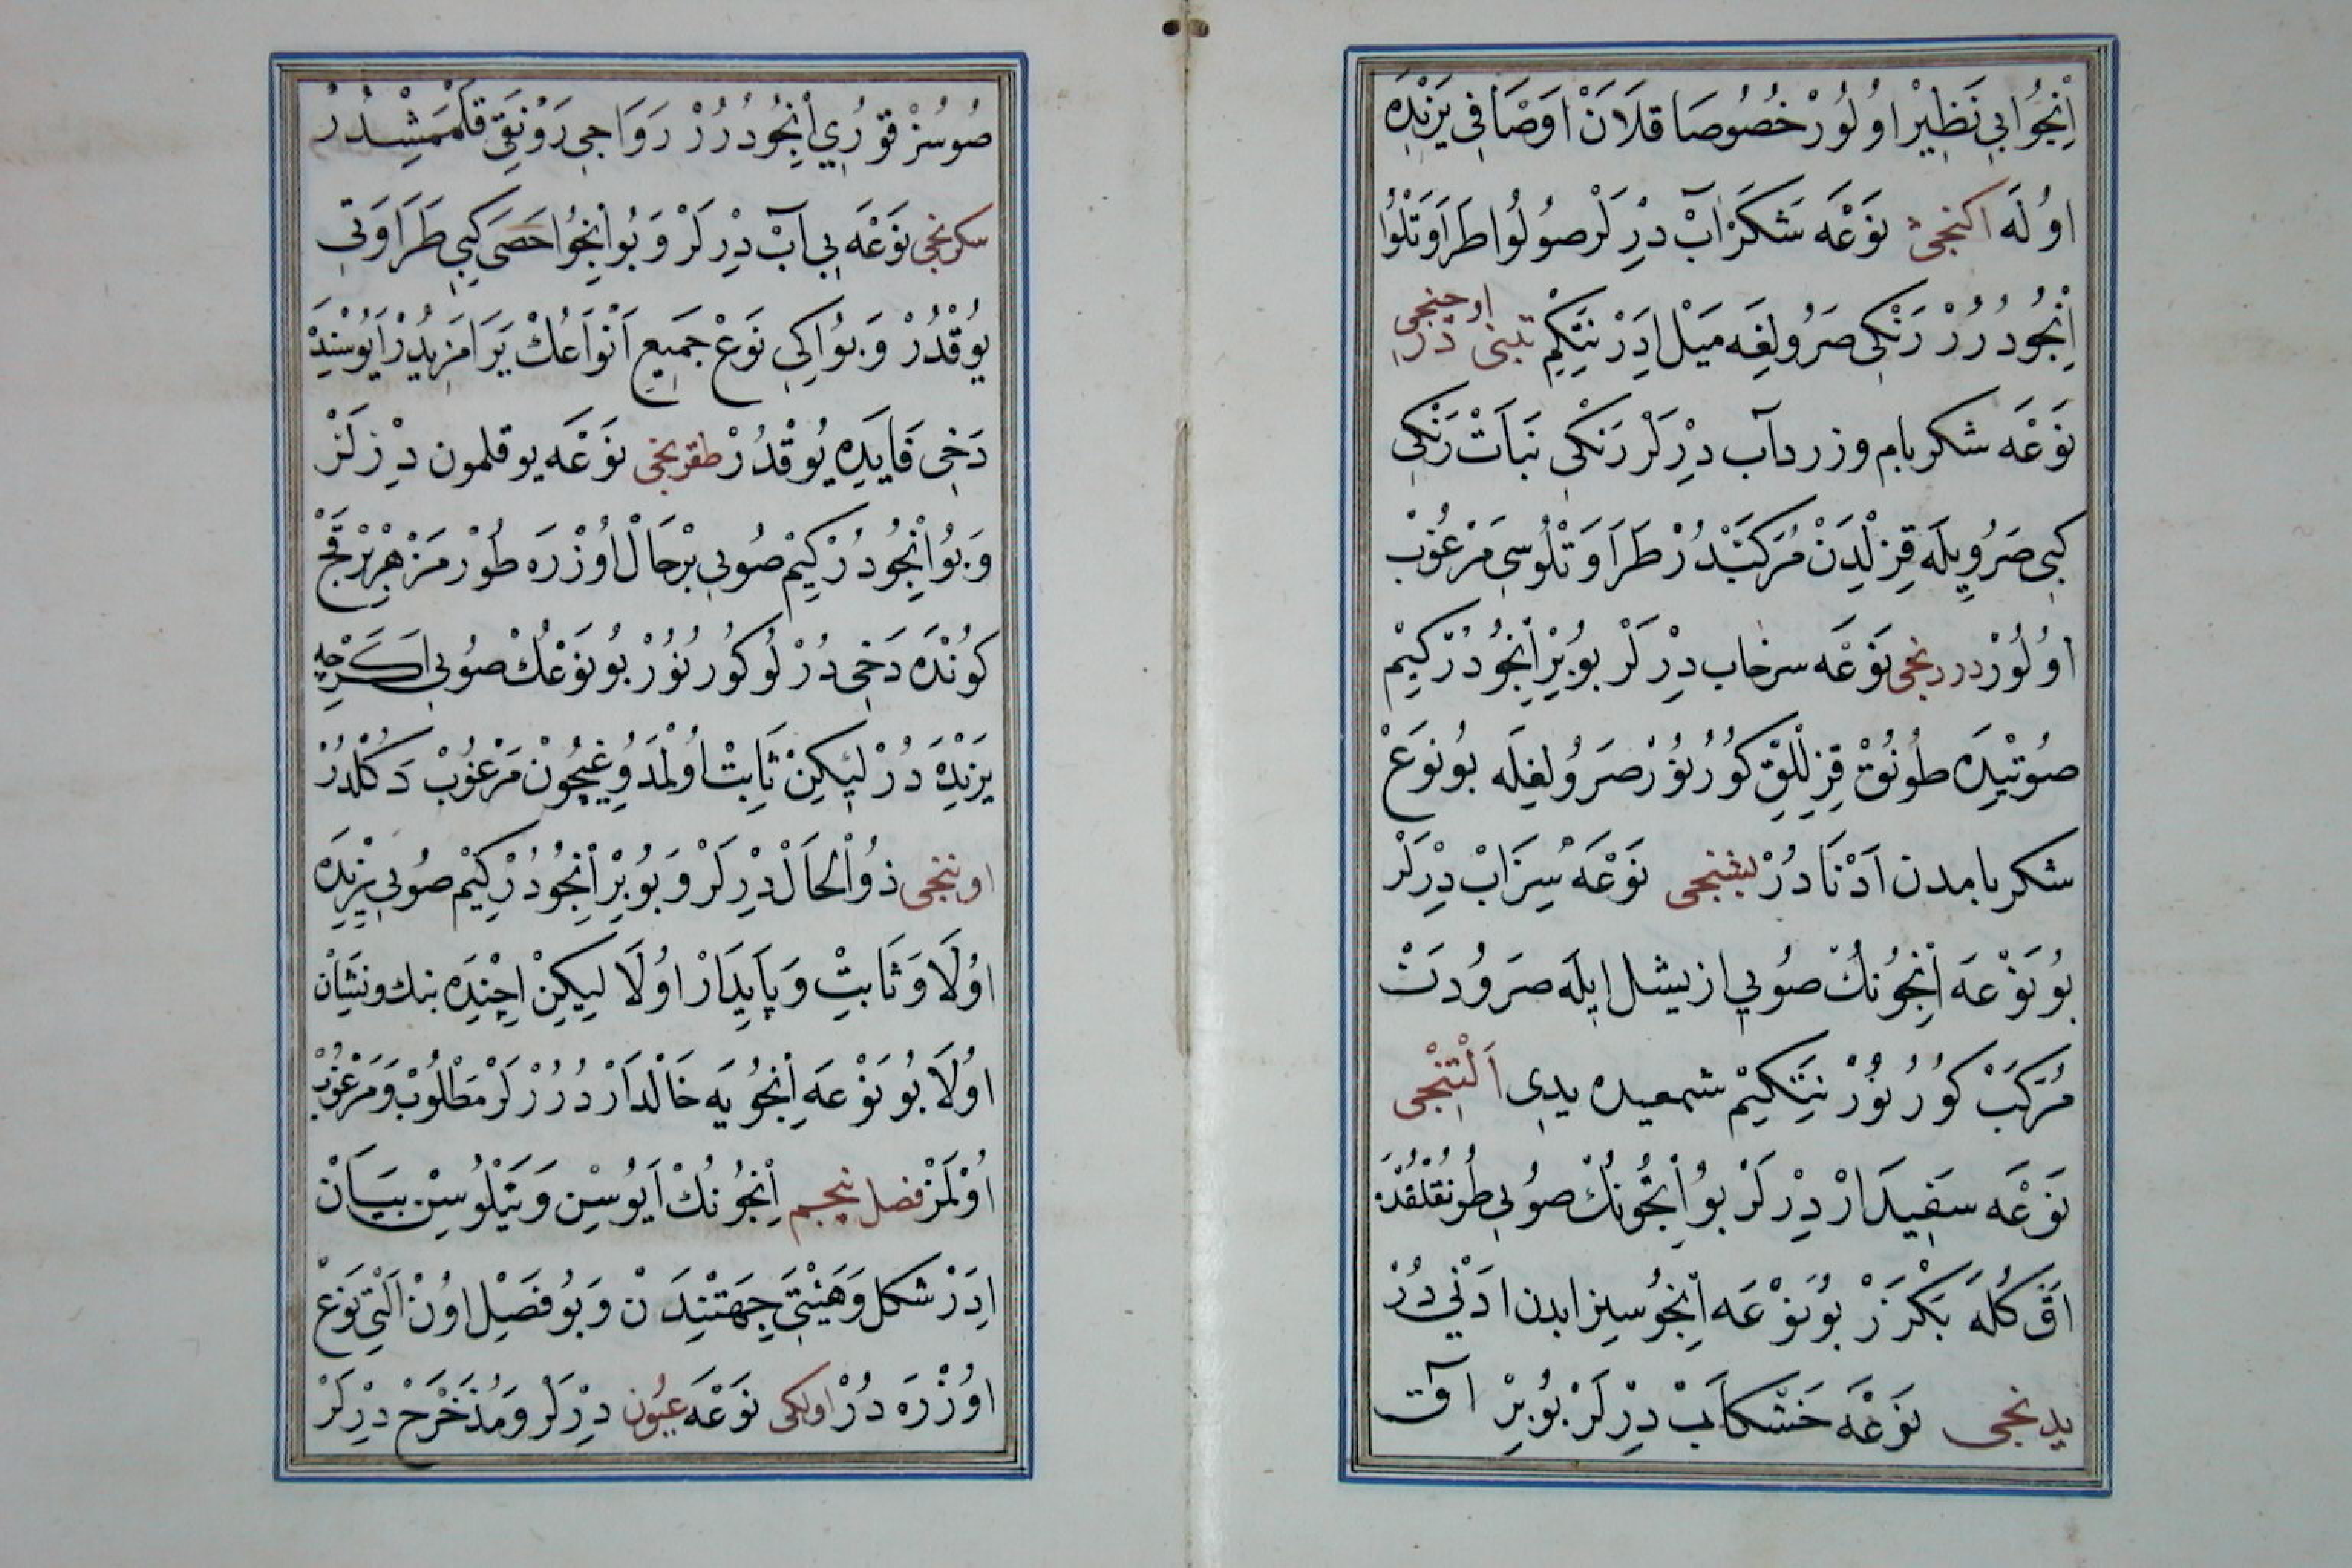 اِنْجُو بِى نَظِيْر اوُلُورْ خُصُوصَا قَلَانْ اَوْصَافِى يَرِنْدَه
اوُلَه اكنجى نَوْعَه شَكَرْ آبْ دِرْلَرْ صُولُو طَرَاوَتْلُو
اِنْجُودُرُرْ رَنْكِى صَرُولِغَه مَيْل اِدَرْ نِتَكِمْ تبنى دُرْ اوچنجى
نَوْعَه شكر بام و زرد آب دِرْلَرْ رَنْكِى نَبَاتْ رَنْكِى
كِبِى صَرُويِلَه قِزِلْدَنْ مُرَكَّبْدُرْ طَرَاوَتْلُوسِى مَرْغُوبْ
اوُلُورْ دردنجى نَوْعَه سرخاب دِرْلَرْ بُو بِرْ اِنْجُودُرْ كِيمْ
صُوتِيْدَه طُونُوقْ قِزِلْلِقْ كُورُنُورْ صَرُولِغِلَه بُو نَوْعْ
شكر بامدن اَدْنَادُرْ بشنجى نَوْعَه سِرَابْ دِرْلَرْ
بُو نَوْعَه اِنْجُونُكْ صُويِى از يشل ايلَه صَرُودَنْ
مُرَكَّبْ كُورُنُورْ نِتَكِيمْ شمعيده يدى اَلْتِنْجِى
نَوْعَه سَفِيدَارْ دِرْلَرْ بُو اِنْجُونُكْ صُويِى طُونُقْلُقْدَه
آقْ كُلَه بَكْزَرْ بُو نَوْعَه اِنْجُو سيزابدن اَدْنٰى دُرْ
يدنجى نَوْعَه خَشْكَابْ دِرْلَرْ بُو بِرْ آق
صُوسُزْ قُورِى اِنْجُودُرُرْ رَوَاجِى رَوْنَقِى قَلْمَمَشْدُرْ
سكزنجى نَوْعَه بِى آبْ دِرْلَرْ وَبُو اِنْجُو حَصَى كِبِى طَرَاوَتِى
يُوقْدُرْ وَبُو اِكِى نَوْعْ جَمِيعِ اَنْوَاعُكْ يَرَامَزِيدُرْ اَيُوسِنْدَه
دَخِى فَايِدَه يُوقْدُرْ طقزنجى نَوْعَه بوقلمون دِرْلَرْ
وَبُو اِنْجُودُرْ كِيمْ صُويِى بِرْ حَالْ اوُزْرَه طُورْمَزْ هِرْ بِرْ قَچْ
كُونْدَه دَخِى دُرْلُو كُورُنُورْ بُو نَوْعُكْ صُويِى اَكَرْچِه
يَرِنْدَه دُرْ لِيكِنْ ثَابِتْ اُولْمَدُوغِيچُونْ مَرْغُوبْ دَكُلْدُرْ
اوننجى ذُو الْحَالْ دِرْلَرْ وَبُو بِرْ اِنْجُودُرْ كِيْم صُويِى يَرِنْدَه
اوُلَا وَثَابِتْ وَپَايِدَارْ اوُلَا لِيكِنْ اِچِنْدَه بنك ونِشَانْ
اوُلَا بُو نَوْعَه اِنْجُويَه خَالْدَارْ دُرُرْلَرْ مَطْلُوبْ وَمَرْغُوبْ
اُولْمَزْ فصل پنجم اِنْجُونُكْ اَيُوسِنْ وَيَتْلُوسِنْ بَيَانْ
اِدَرْ شَكِل وَهَيْئَتِى جِهَتِنْدَنْ وَبُو فَصِيْل اوُنْ اَلْتِى نَوْعْ
اوُزْرَه دُرْ اولكى نَوْعَه عيُون دِرْلَرْ وَمُدَخْرَجْ دِرْلَرْ